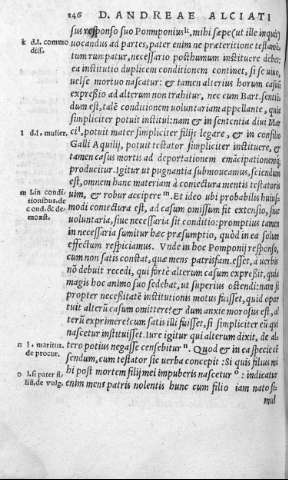 246 D. ANDREAE ALCIATI
sus responso suo Pomponius k, mihi sæpe (ut ille inquit)
k d.l. commo
uocandus ad partes, pater enim ne præteritione testamẽ-
dis
tum rumpatur, necessario posthumum instituere debet:
ea institutio duplicem conditionem continet, si se uiuo,
uelse mortuo nascatur: & tamen alterius horum casuũ
expressio ad alterum non trahitur, nec cum Bart. senti-
dum est, talē conditionem uoluntariam appellante, quia
simpliciter potuit institui: nam & in sententia diui Mar
l d.l. mulier.
ci l, potuit mater simpliciter filijs legare, & in consilio
Galli Aquilij, potuit testator simpliciter instituere, &
tamen casus mortis ad deportationem emācipationemq́;
producitur. Igitur ut pugnantia submoueamus, sciendum
est, omnem hanc materiam à coniectura mentis testatoris
m l.in condi-
uim, & robur accipere m. Et ideo ubi probabilis huius-
tionibus. de
cond. & de-
modi coniectura est, ad casum omissum fit extensio, siue
monst.
uoluntaria, siue necessaria sit conditio: promptius tamen
in necessaria sumitur hæc præsumptio, quòd in ea solum
effectum respiciamus. Vnde in hoc Pomponij responso,
cum non satis constat, quæ mens patrisfam. esset, à uerbis
nō debuit recedi, qui fortè alterum casum expressit, quia
magis hoc animo suo sedebat, ut superius ostendi: nam si
propter necessitatē institutionis motus fuisset, quid opor
tuit alterũ casum omittere: & dum anxie morosus est, al
terũ exprimere: cum satis illi fuisset, si simpliciter eũ qui
nascetur instituisset. Iure igitur qui alterum dixit, de al-
n l. maritus.
tero potius negasse censebitur n. Quod & in ea specie ci
de procur.
sendum, cum testator sic uerba concepit: Si quis filius mi
o l.si pater fi-
hi post mortem filij mei impuberis nascetur o: indicatur
lij. de vulg.
enim mens patris nolentis hunc cum filio iam nato si-
mul